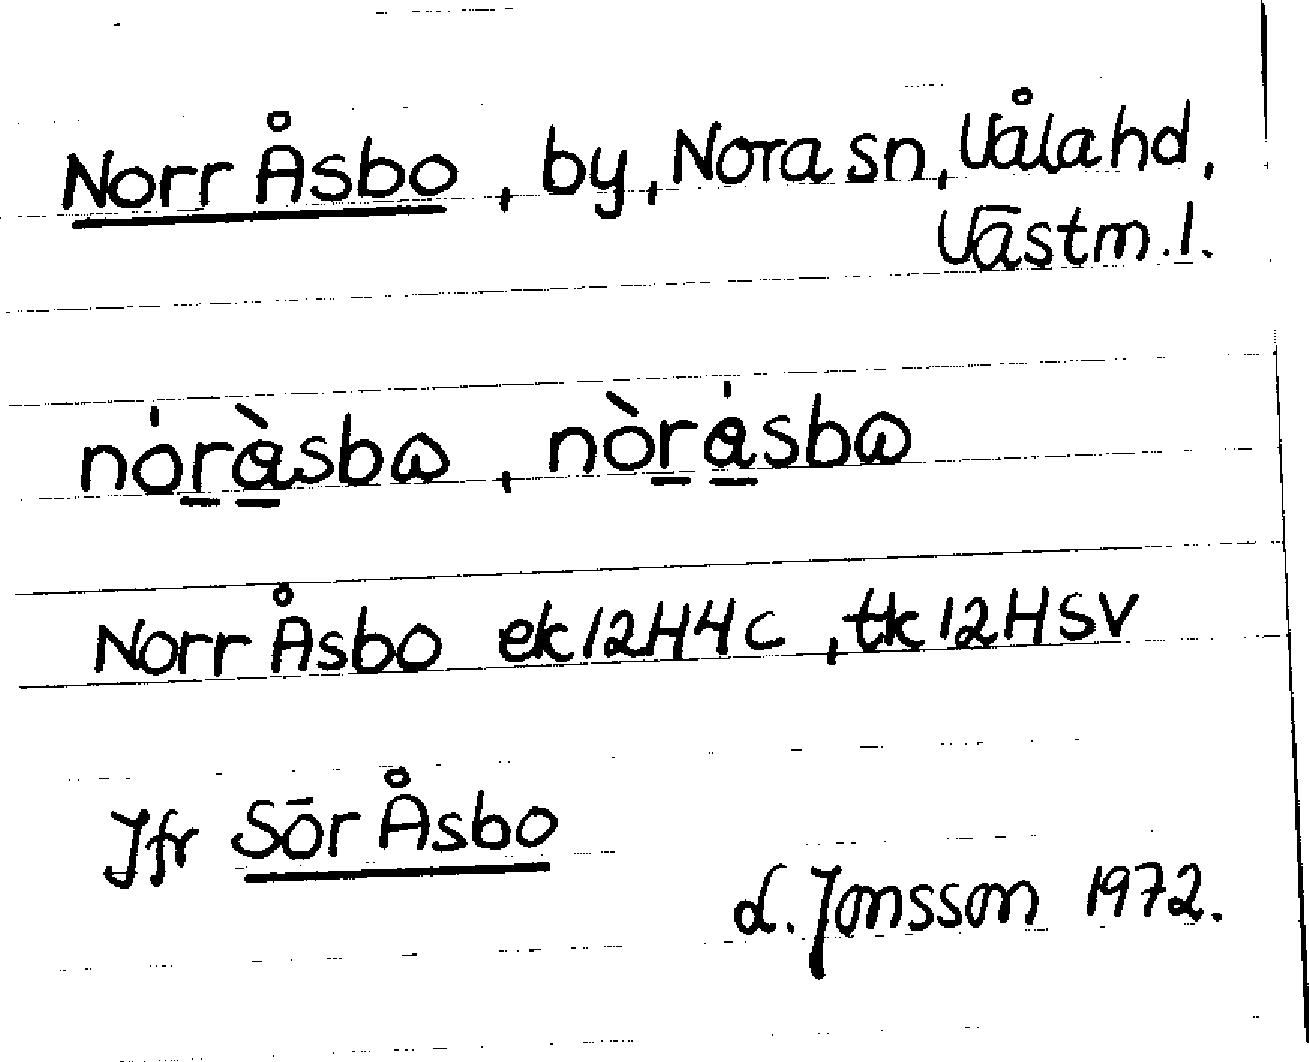 Norr Åsbo, by, Nora sn, Våla hd,
Västm. l.
Norr Åsbo ek 12H4c, tk 12HSV
Jfr Sör Åsbo
L. Jonsson 1972.